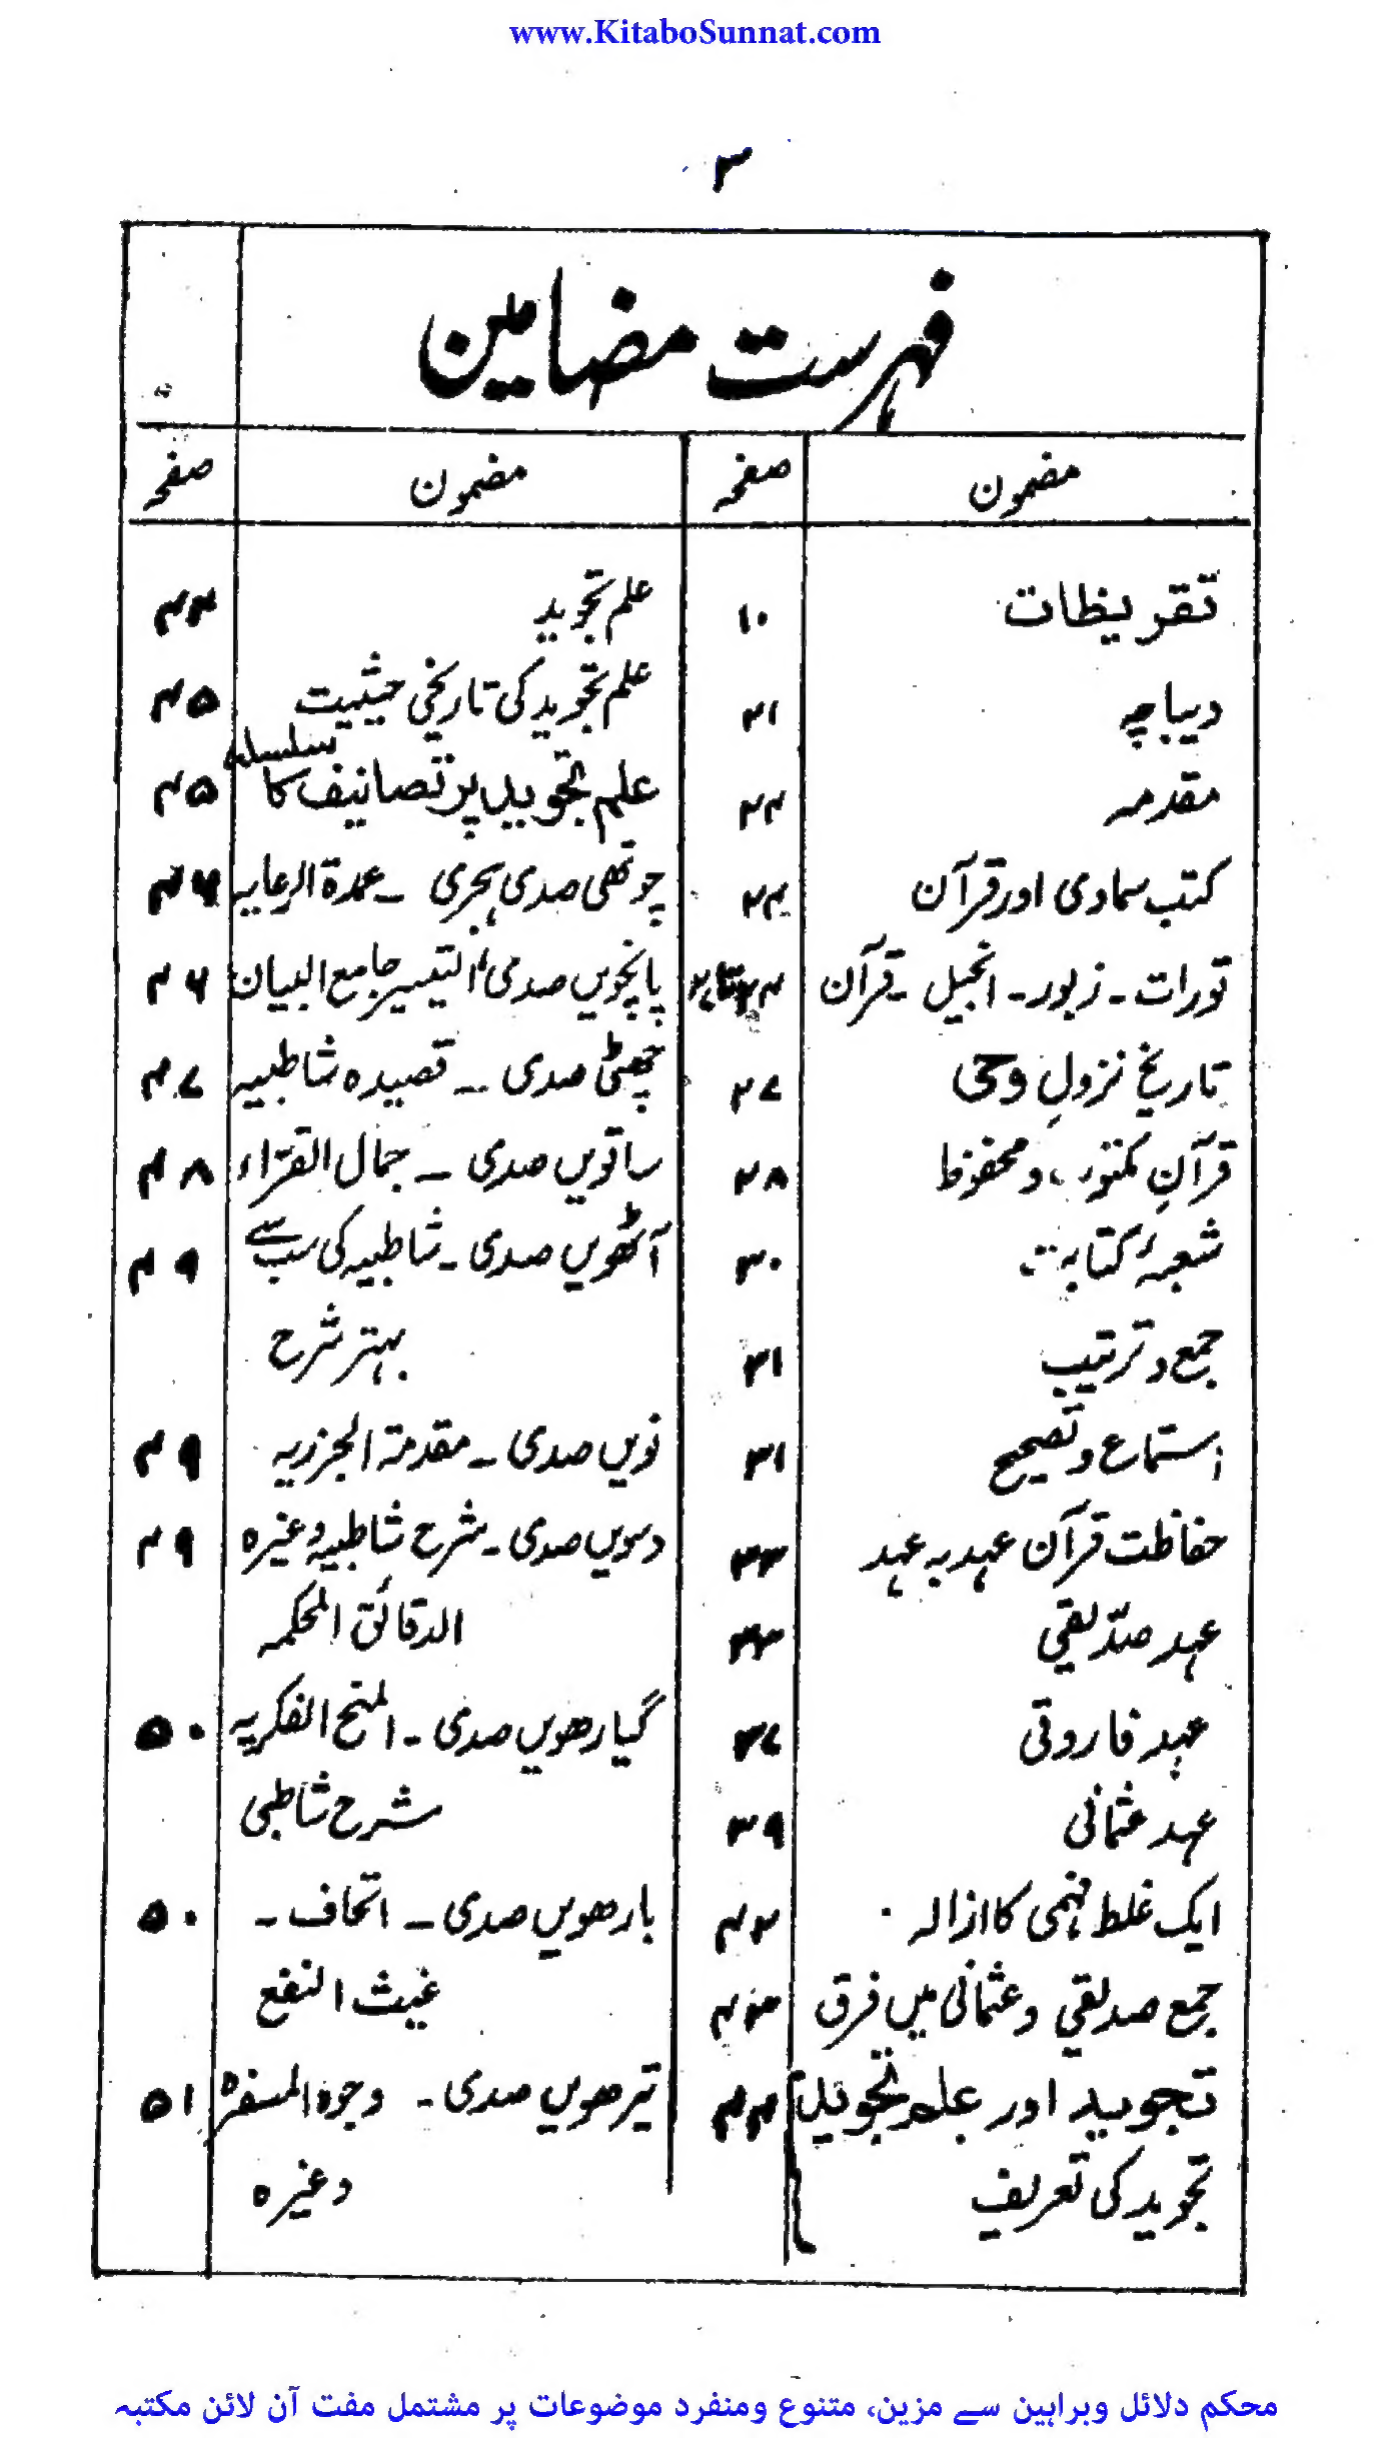 www.KitaboSunnat.com
۳
فہرست مضامین
مضمون صفحہ مضمون صفحہ
تقریظات ۱۰
دیباچہ ۲۱
مقدمہ ۲۴
کتب سماوی اور قرآن ۲۴
تورات - زبور - انجیل - قرآن
تاریخ نزولِ وحی ۲۷
قرآنِ مکتوب و محفوظ ۲۸
شعبۂ کتابت ۳۰
جمع و ترتیب ۳۱
استماع و تصحیح ۳۱
حفاظت قرآن عہد بہ عہد ۳۳
عہد صدّیقی ۳۳
عہد فاروقی ۳۷
عہد عثمانی ۳۹
ایک غلط فہمی کا ازالہ ۴۲
جمع صدیقی و عثمانی میں فرق ۴۳
تجوید اور علم تجوید ۴۴
تجوید کی تعریف
علم تجوید ۴۴
علم تجوید کی تاریخی حیثیت ۴۵
علم تجوید پر تصانیف کا سلسلہ ۴۵
چوتھی صدی ہجری - عمدۃ الرعایہ ۴۶
پانچویں صدی، التیسیر جامع البیان ۴۶
چھٹی صدی - قصیدہ شاطبیہ ۴۷
ساتویں صدی - جمال القرّاء ۴۸
آٹھویں صدی - شاطبیہ کی سب سے ۴۹
بہتر شرح
نویں صدی - مقدمۃ الجزریہ ۴۹
دسویں صدی - شرح شاطبیہ وغیرہ ۴۹
الدقائق المحکمہ
گیارھویں صدی - المنح الفکریہ ۵۰
شرح شاطبی
بارھویں صدی - اتحاف - ۵۰
غیث النفع
تیرھویں صدی - وجوہ المسفرہ ۵۱
وغیرہ
محکم دلائل وبراہین سے مزین، متنوع ومنفرد موضوعات پر مشتمل مفت آن لائن مکتبہ